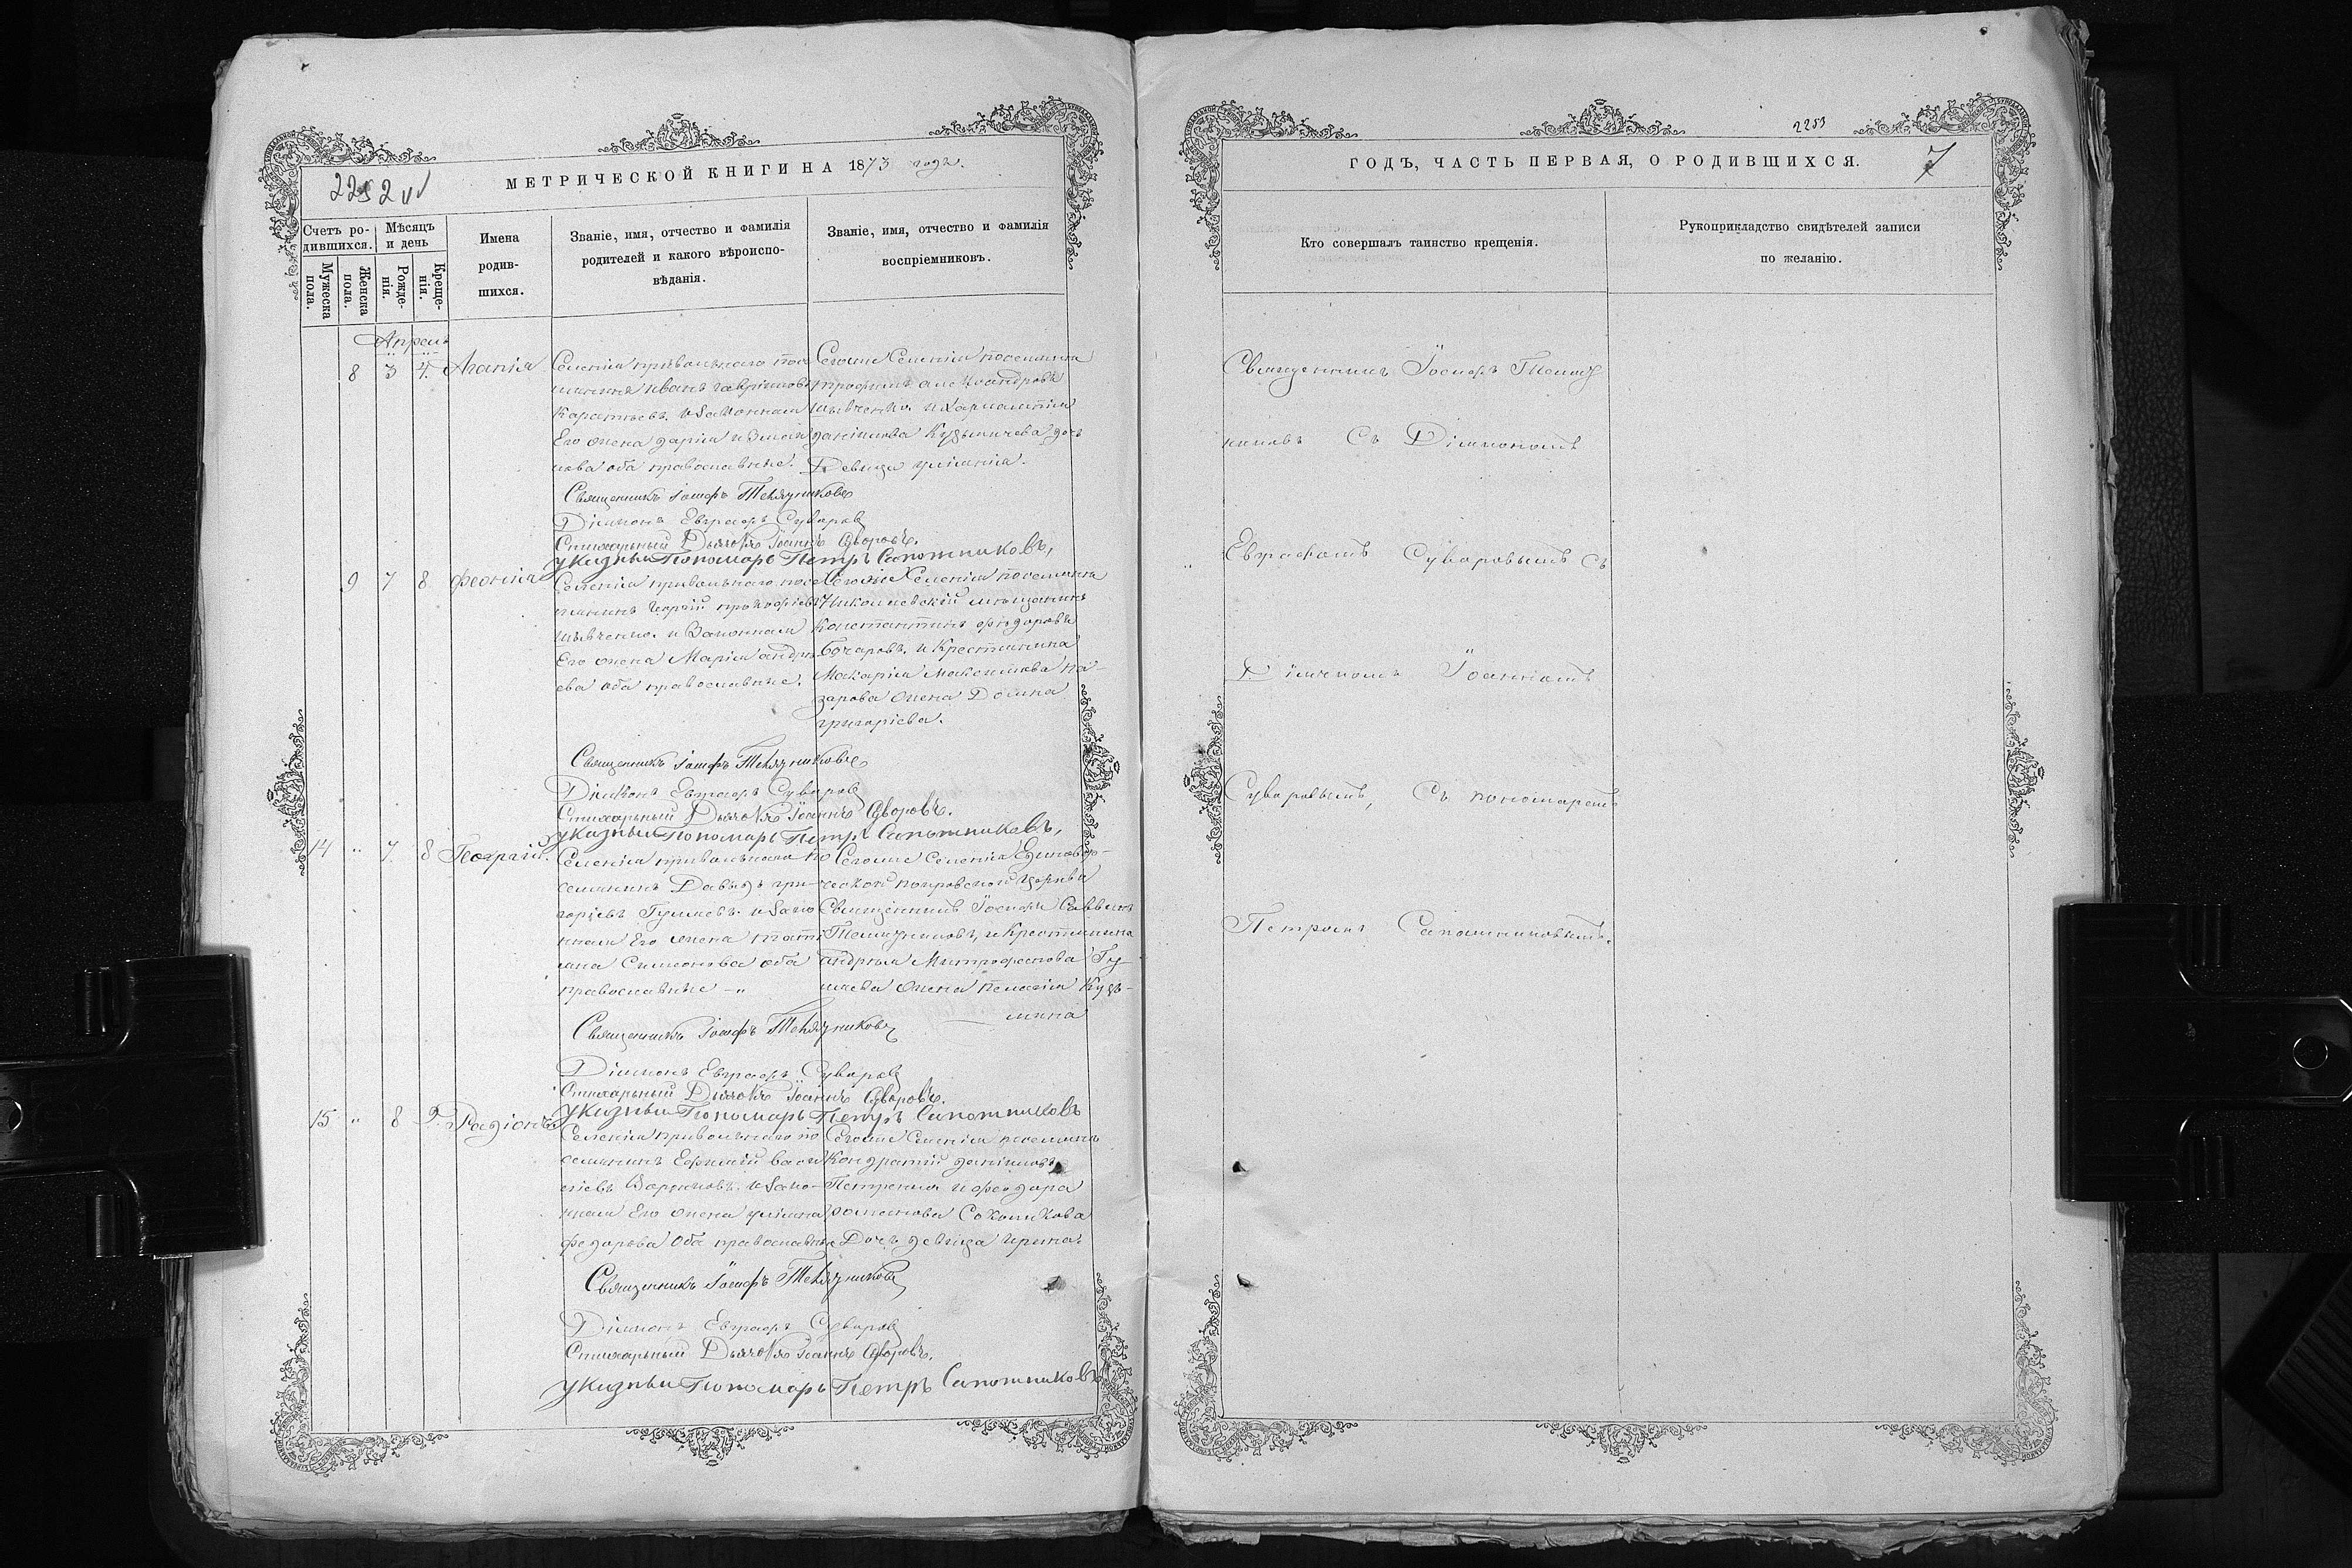 2252
МЕТРИЧЕСКОЙ КНИГИ НА 1873 года.
Счетъ ро-
дившихся.
Мужеска пола.
Женска пола.
Мѣсяцъ
и день
Рожде-
нія.
Креще-
нія.
Имена
родив-
шихся.
Званіе, имя, отчество и фамилія
родителей и какого вѣроиспо-
вѣданія.
Званіе, имя, отчество и фамилія
воспріемниковъ.
Апрель
8 3 4. Агапія
Селенія привольнаго посе
лянинъ Иванъ Гавріиловъ
Каратьевъ. и Законная
Его жена Дарія
нова оба православные.
Сегоже Селенія поселянинъ
трофимъ александровъ
шывченко. и Харлампія
даніилова Кузьмичева дочь
Девица уліянія.
Священникъ Іосифъ Теплужниковъ
Діяконъ Евграфъ Суворов
Стихарный Дьячокъ Іоаннъ Суворовъ.
указный Пономарь Петръ Сапожниковъ,
9 7 8 феонія
Селенія привольнаго посе
лянинъ прокофіевъ
шывченко. и Законная
Его жена Марія андре
ева оба православные.
Сегоже Селенія поселянинъ
Николаевскій мещанинъ
Константинъ фѣдоровъ
Бочаровъ. и Крестьянина
Макарія Максимова на-
зарова жена Домна
григоріева.
Священникъ Іосифъ Теплужниковъ
Діяконъ Евграфъ Суворов
Стихарный Дьячокъ Іоаннъ Суворовъ.
указный Пономарь Петръ Сапожниковъ,
14 " 7 8 Георгій.
Селенія привольнаго по
селянинъ Давыдъ гри-
горіевъ Гуляевъ. и Зако
нная Его жена тати
яна Симеонова оба
православные – "
Сегоже Селенія Единовѣр-
ческой покровской Церкви
Священникъ Іосифъ Саввинъ
Теплужниковъ, и Крестьянина
андрея Митрофанова Гу-
ляева жена пелагія Кузь-
мина
Священникъ Іосифъ Теплужников
Діяконъ Евграфъ Суворов
Стихарный Дьячокъ Іоаннъ Суворовъ.
указный Пономарь Петръ Сапожниковъ
15 " 8 9. Радіонъ
Селенія привольнаго по
селянинъ Ефимій васи
ліевъ и Зако-
нная Его жена уліяна
федорова Оба православные
Сегоже Селенія поселянинъ
Кондратій даніиловъ
и феодора
романова Соколикова
Дочь девица ирина.
Священникъ Іосифъ Теплужников
Діяконъ Евграфъ Суворов
Стихарный Дьячокъ Іоаннъ Суворовъ.
указный Пономарь Петръ Сапожниковъ
2253
7
ГОДЪ, ЧАСТЬ ПЕРВАЯ, О РОДИВШИХСЯ.
Кто совершалъ таинство крещенія.
Рукоприкладство свидѣтелей записи
по желанію.
Священникъ Іосифъ Теплуж
никовъ Съ Діякономъ
Евграфомъ Суворовымъ Съ
Діячкомъ Іоанномъ
Суворовымъ, Съ пономаремъ
Петромъ Сапожниковымъ.